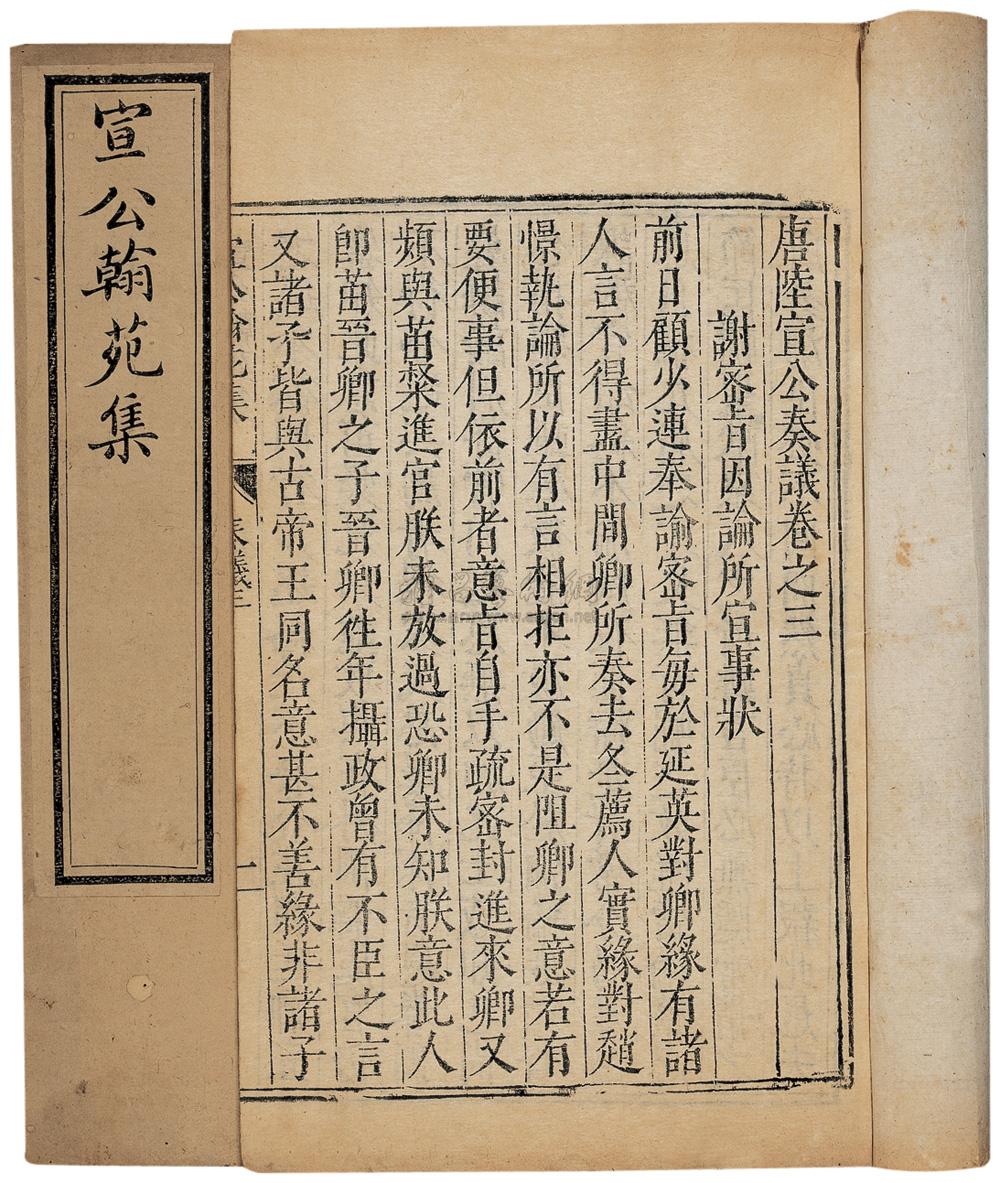 宣公翰苑集
唐陸宣公奏議卷之三
謝宻旨因論所宣事狀
前日顧少連奉諭宻旨每於延英對卿緣有諸
人言不得盡中間卿所奏去冬薦人實緣對趙
憬執論所以有言相拒亦不是阻卿之意若有
要便事但依前者意旨自手疏宻封進來卿又
頻與苗粲進官朕未放過恐卿未知朕意此人
卽苗晉卿之子晉卿徃年攝政曾有不臣之言
又諸子皆與古帝王同名意甚不善緣非諸子
宣公翰苑集
奏議三
一